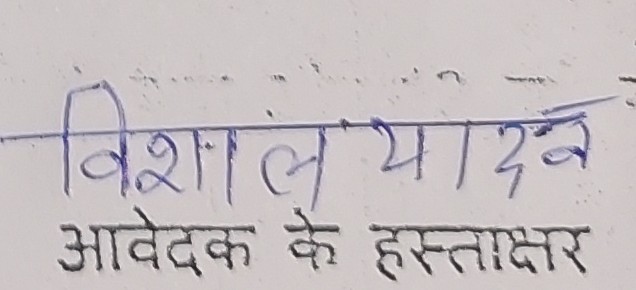 विशाल यादव
आवेदक के हस्ताक्षर